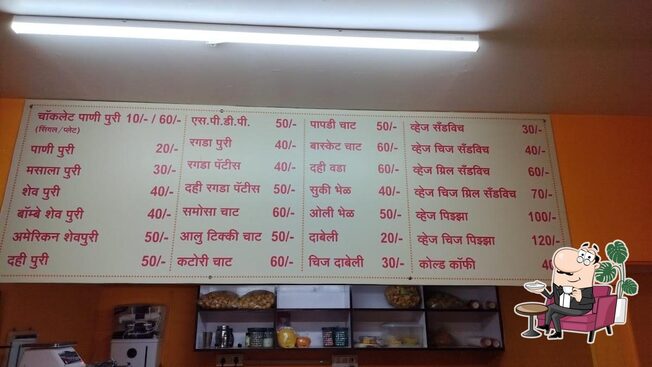 चॉकलेट पाणी पुरी 10/- / 60/-
(सिंगल / प्लेट)
पाणी पुरी 20/-
मसाला पुरी 30/-
शेव पुरी 40/-
बॉम्बे शेव पुरी 40/-
अमेरिकन शेवपुरी 50/-
दही पुरी 50/-
एस.पी.डी.पी. 50/-
रगडा पुरी 40/-
रगडा पॅटीस 40/-
दही रगडा पॅटीस 50/-
समोसा चाट 60/-
आलु टिक्की चाट 50/-
कटोरी चाट 60/-
पापडी चाट 50/-
बास्केट चाट 60/-
दही वडा 60/-
सुकी भेळ 40/-
ओली भेळ 50/-
दाबेली 20/-
चिज दाबेली 30/-
व्हेज सँडविच 30/-
व्हेज चिज सँडविच 40/-
व्हेज ग्रिल सँडविच 60/-
व्हेज चिज ग्रिल सँडविच 70/-
व्हेज पिझ्झा 100/-
व्हेज चिज पिझ्झा 120/-
कोल्ड कॉफी